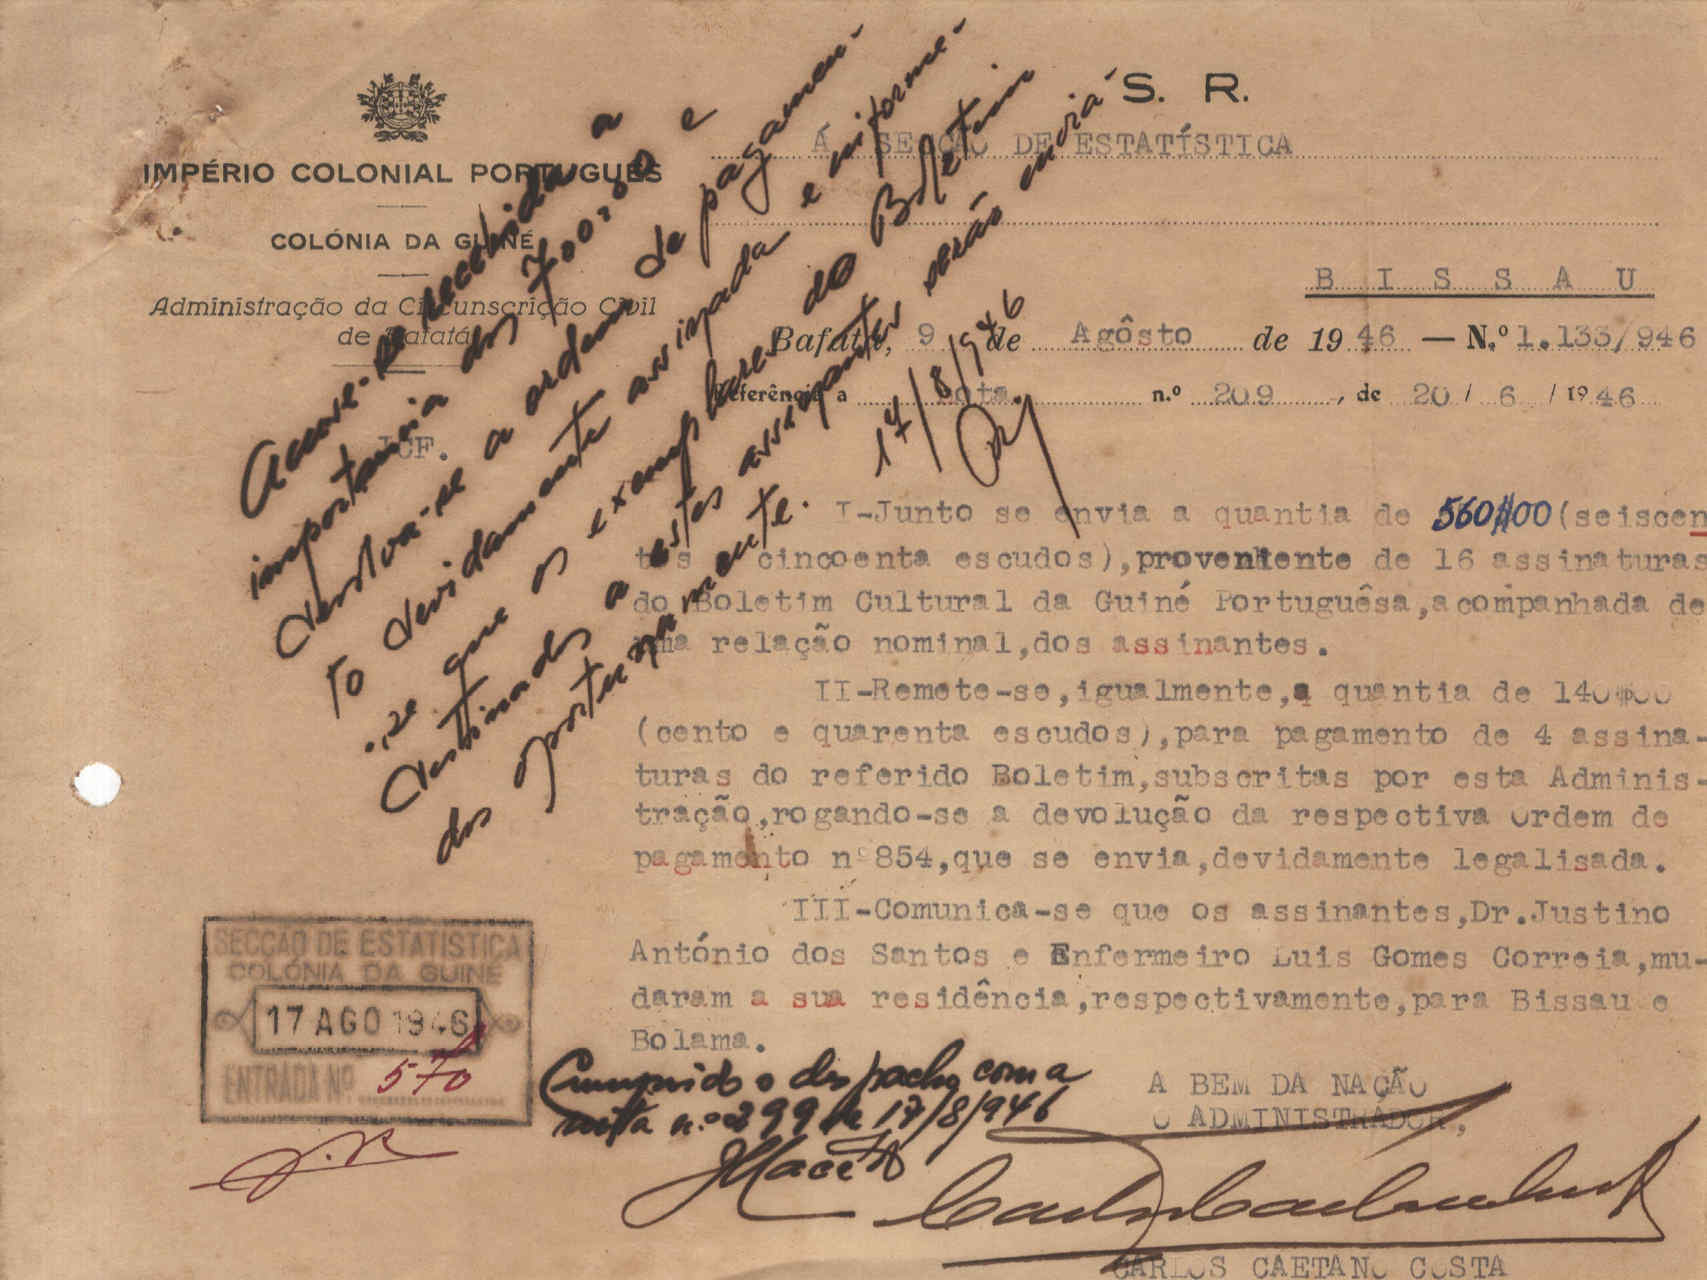 S. R.
IMPÉRIO COLONIAL PORTUGUÊS
COLÓNIA DA GUINÉ
Administração da Circunscrição Civil
de Bafatá
JCF.
Á SECÇÃO DE ESTATÍSTICA
B I S S A U
Bafatá, 9 de Agôsto de 1946 — N.º 1.133/946
Referência a nota. n.º 209, de 20/ 6 / 1946
Acuse-se recebida a
importancia dos 700:00 e
devolva-se a ordem de pagamen-
to devidamente assinada e informe-
-se que os exemplares do Boletim
destinados a estes assinantes serão enviá-
dos oportunamente.
17/8/946
I-Junto se envia a quantia de 560$00(seiscen
tos cincoenta escudos),proveniente de 16 assinaturas
do Boletim Cultural da Guiné Portuguêsa,acompanhada de
uma relação nominal,dos assinantes.
II-Remete-se,igualmente,a quantia de 140$00
(cento e quarenta escudos),para pagamento de 4 assina-
turas do referido Boletim,subscritas por esta Adminis-
tração,rogando-se a devolução da respectiva Ordem de
pagamento nº854,que se envia,devidamente legalisada.
III-Comunica-se que os assinantes,Dr.Justino
António dos Santos e Enfermeiro Luis Gomes Correia,mu-
daram a sua residência,respectivamente,para Bissau e
Bolama.
SECÇÃO DE ESTATISTICA
COLÓNIA DA GUINÉ
17 AGO 1946
ENTRADA Nº 570
Cumprido o despacho com a
nota n.º 299 de 17/8/946
A BEM DA NAÇÃO
O ADMINISTRADOR,
CARLOS CAETANO COSTA